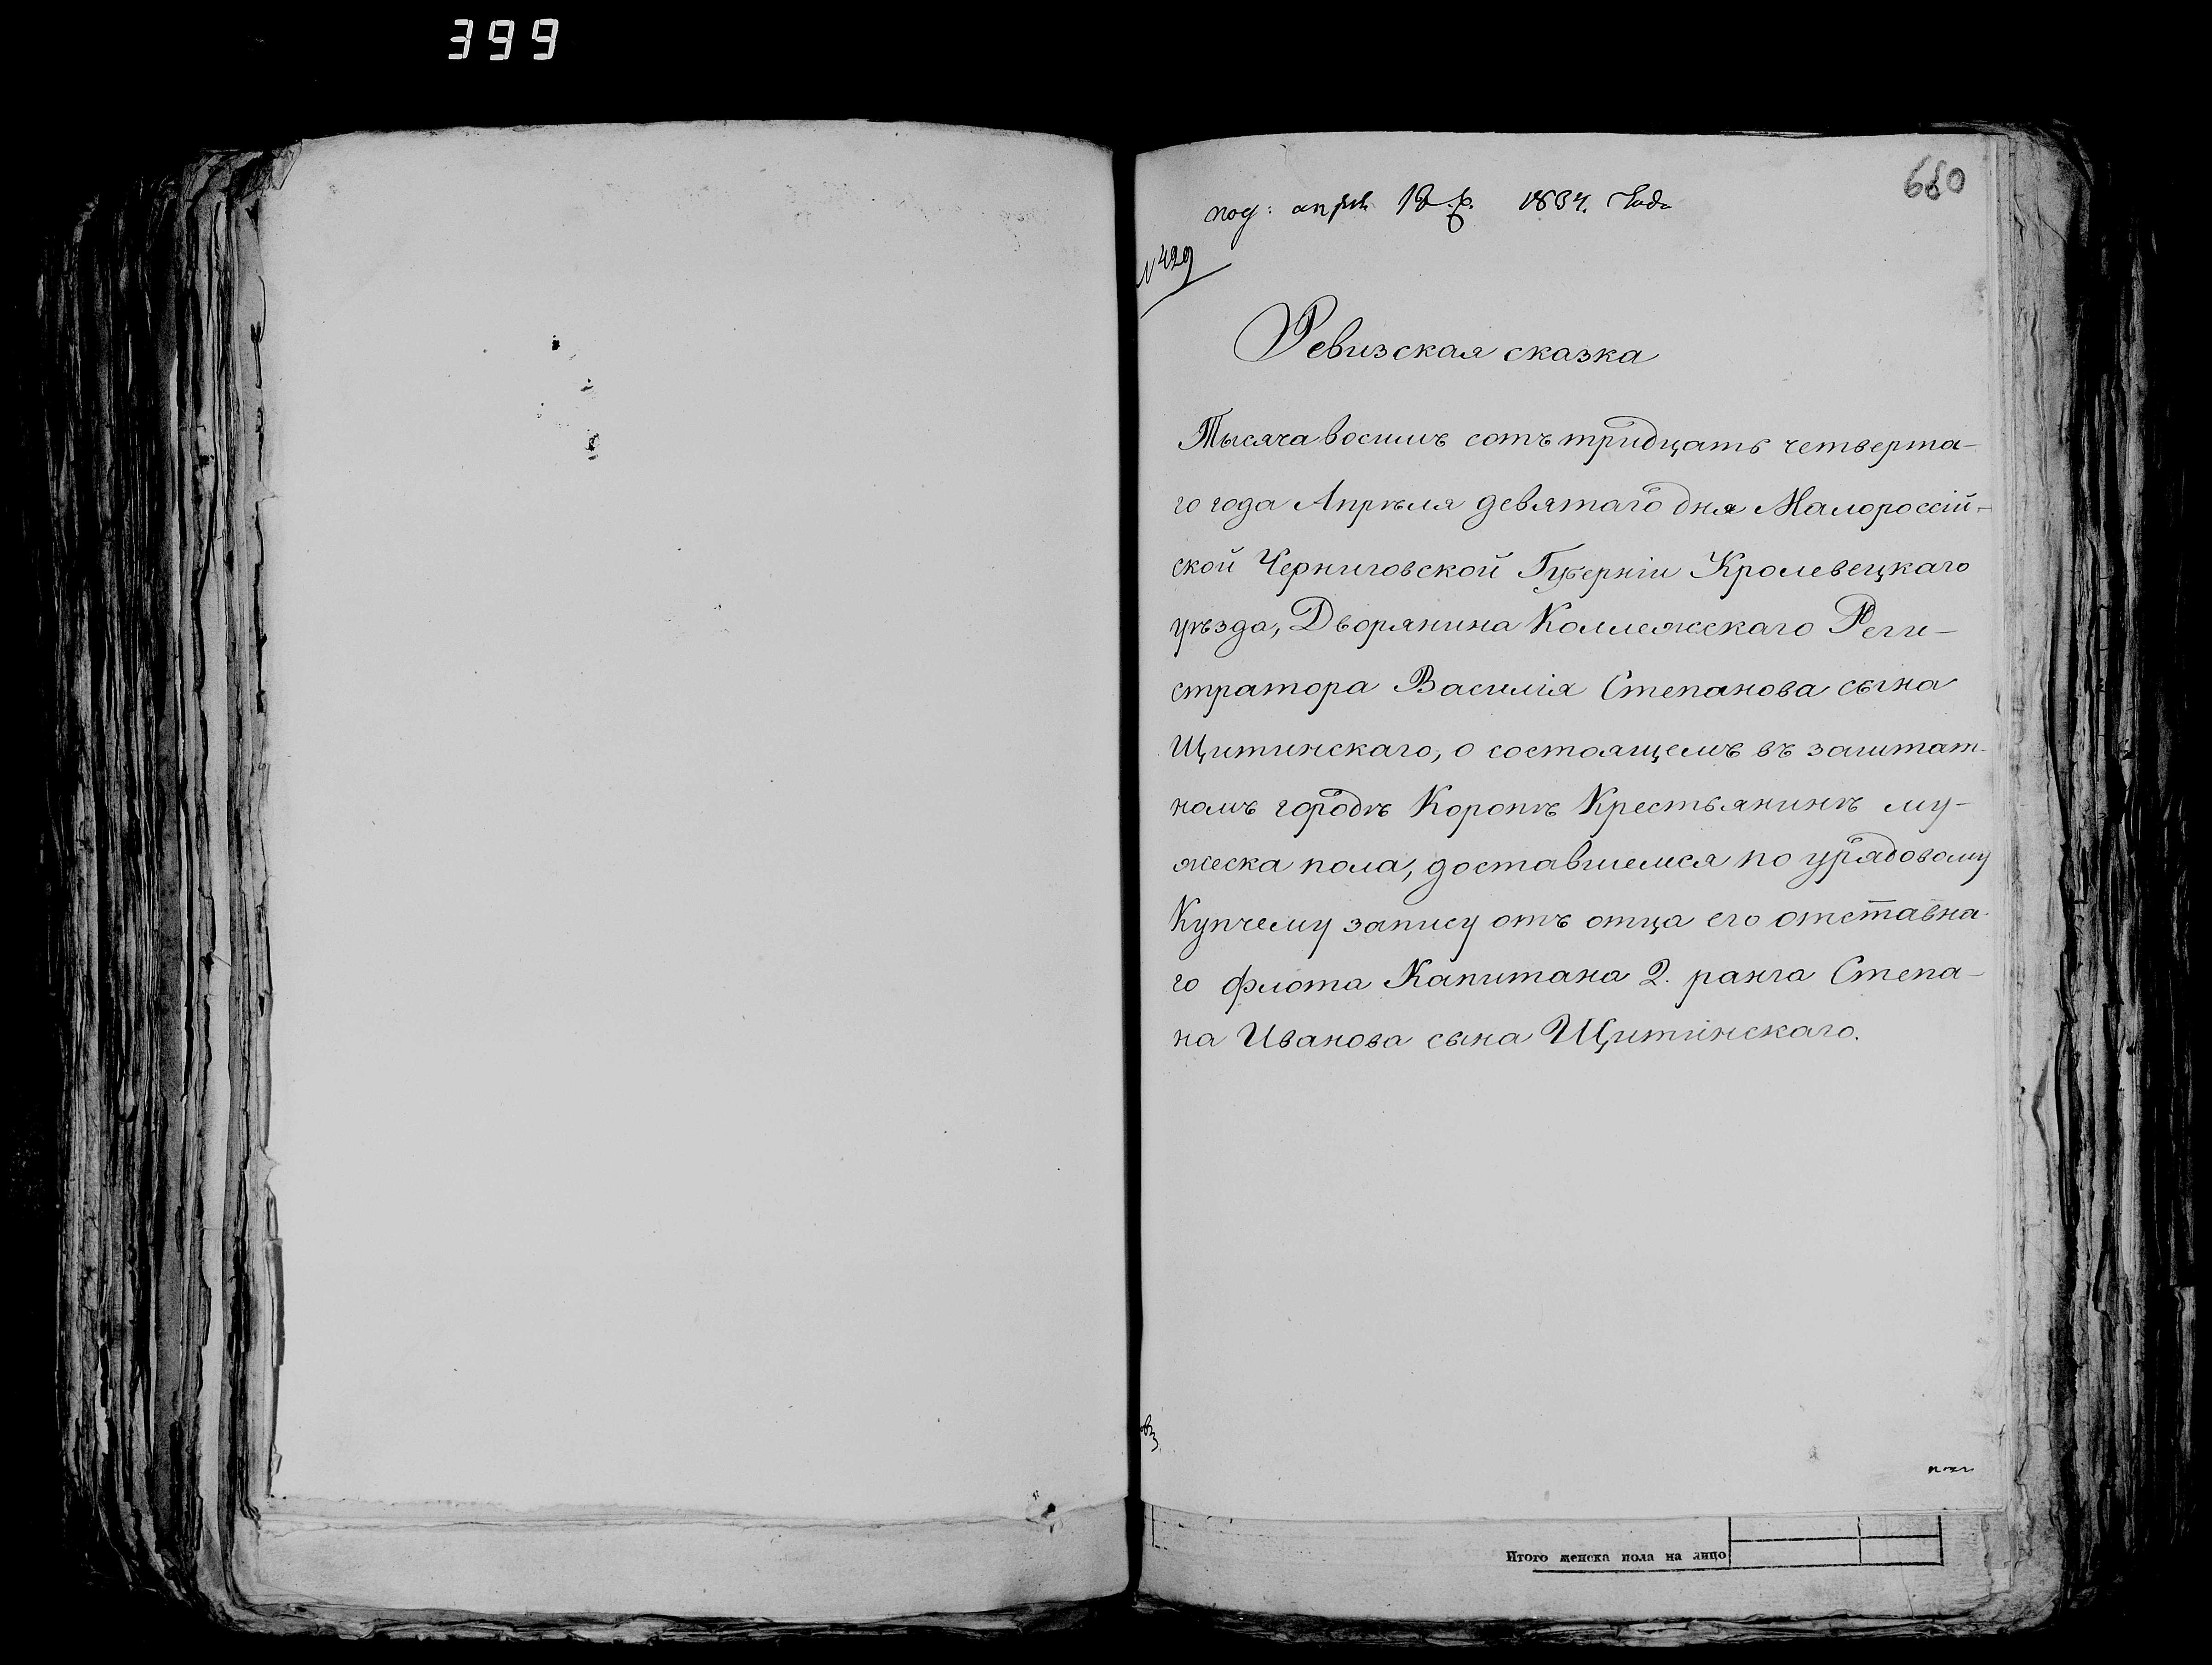 399
660
под: апрѣл 1834. года
№ 429
Ревизская сказка
Тысяча восимъ сотъ тридцать четверта-
го года Апрѣля девятаго дня Малороссій-
ской Черниговской Губерніи Кролевецкаго
уѣзда, Дворянина Коллежскаго Реги-
стратора Василія Степанова сына
Щитинскаго, о состоящемъ въ заштат-
номъ городѣ Коропѣ Крестьянинѣ му-
жеска пола, доставшемся по урядовому
Купчему запису отъ отца его отставна-
го флота Капитана 2. ранга Степа-
на Иванова сына Щитинскаго.
Итого женска пола на лицо